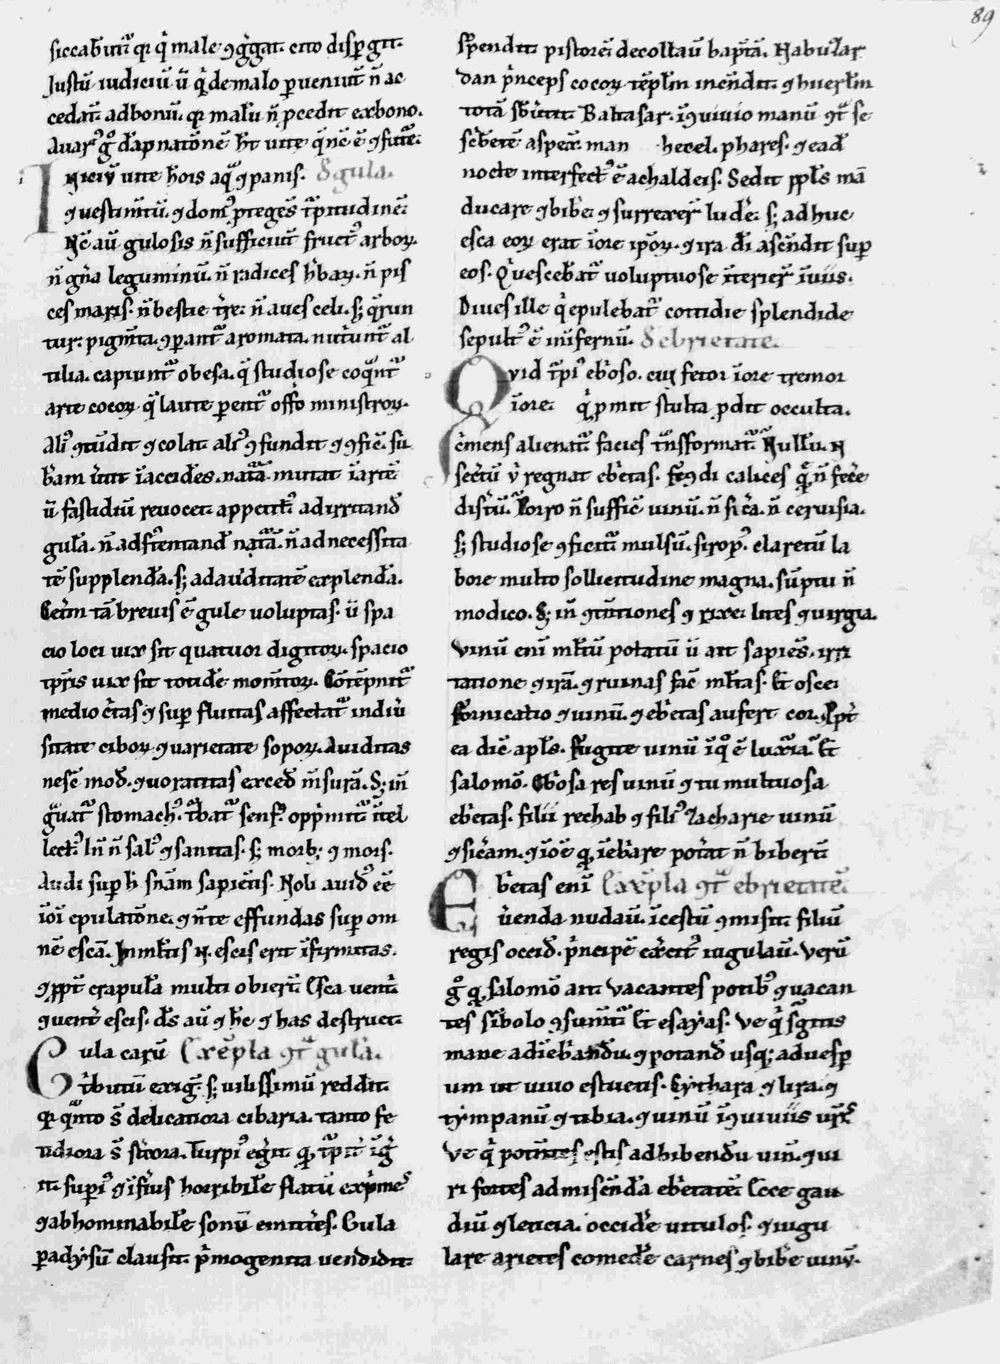 89
siccabit̃ur̃ qr q̃ male ꝯg̃gat. cito dispg̃it.
Iustũ iudiciũ ũ q̃ de malo ꝑueniũt ñ ac
cedãt ad bonũ. qr malũ ñ ꝓcedit ex bono.
Auarꝰ g° dãpnatõnẽ hт̃ uite q̃ nc̃ ẽ ꝯfutẽ.
Iniciũ uite hõis aq̃ ꝯ panis. δ gula.
ꝯ uestim̃tũ. ꝯ domꝰ ꝓteges̃ t̃pitudinẽ.
Nc̃ aũ gulosis ñ sufficiũt fructꝰ arboꝝ.
ñ gña leguminũ. ñ radices hbaꝝ. ñ pis
ces maris. ñ bestie tr̃e. ñ aues celi. s; q̃run
tur. pigm̃ta. ꝯꝑant̃ aromata. nut̃unt̃ al
tilia. capiunt̃ obesa. q̃ studiose coq̃nt̃
arte cocoꝝ. q̃ laute ꝑent̃ offõ ministroꝝ.
Aliꝰ ꝯtũdit ꝯ colat. aliꝰ ꝯfundit ꝯ ꝯfic̃. su
b̃am ũtit ĩ accidẽs. natã mutat ĩ artẽ
ũ fastidiũ reuocet appetit̃ ad irritand̃
gulã. ñ ad sustentand̃ natã. ñ ad necessita
tẽ supplendã. s; ad auiditatẽ explendã.
Cet̃m tã breuis ẽ gule uoluptas. ũ spa
cio loci uix sit quatuor digitoꝝ. spacio
tp̃ris uix sit totidẽ momẽtoꝝ. Cõtẽpnit̃
mediocit̃as ꝯ suꝑfluitas affectat̃ in diũ
sitate ciboꝝ ꝯ uarietate sapoꝝ. Auiditas
nesc̃ mod̃. ꝯ uoratitas exced̃ m̃surã. S; in̄
g̃uat̃ stomachꝰ. t̃bat̃ sensꝰ. opp̃mit̃ ĩtel
lectꝰ. Iñ ñ salꝰ ꝯ sanitas. s; morbꝰ ꝯ mors.
Audi suꝑ h̃ sñiam sapientis. Noli auidꝰ eẽ
ĩ õi epulatõne. ꝯ ñ te effundas suꝑ om
nẽ escã. In mltis .n. escis erit ĩfirmitas.
ꝯ ꝓpt̃ crapulã multi obierũt. Esca uent̃i
ꝯ uent̃ escis. ds̃ aũ ꝯ hc̃ ꝯ has destruet.
Gula carũ Exẽpla ꝯt̃ gulã.
tributũ exig̃. s; uilissimũ reddit.
qr q̃nto s̃ delicatiora cibaria. tanto fe
tidiora s̃ st̃cora. Turpiꝰ eg̃it qꝛ t̃pit̃ ĩg̃i
it. suꝑiꝰ ꝯ ĩferiꝰ horribilẽ flatũ expm̃es
ꝯ abhominabilẽ sonũ emittẽs. Gula
paradysũ clausit. p̃mogenita uendidit.
suspendit pistorẽ. decollauĩt baptistã. Nabuzar
dan p̃nceps cocoꝝ tẽplm̃ incendit. ꝯ hierlm̃
totã sb̃uertit. Baltasar. ĩ ꝯuiuio manũ ꝯt̃ se
sc̃bentẽ aspexit. man hecel. phares. ꝯ ead̃
nocte interfectꝰ ẽ a chaldeis. Sedit ppl̃s mã
ducare ꝯ bibẽ ꝯ surrexer̃ ludẽ. s; adhuc
esca eoꝝ erat ĩ ore ipõꝝ. ꝯ ira dĩ ascẽdit suꝑ
eos. Q̃ uescebãt̃ uoluptuose ĩterier̃ ĩ uiis.
Diues ille q̃ epulebat̃ cottidie splendide
sepultꝰ ẽ in ĩfernũ. δ ebrietate.
Qvid t̃piꝰ ebr̃ioso. cui fetor ĩ ore tremor
ĩ corẽ. q̃ ꝓmit stulta ꝓdit occulta.
cui mens alienat̃ facies t̃nsformat̃. Nullũ .n.
secretũ ũ regnat ebr̃ietas. Fecũdi calices quẽ ñ fecẽ
disertũ. Porro ñ suffic̃ uinũ. ñ sic̃a. ñ ceruisia.
s; studiose ꝯficit̃ mulsũ. siropꝰ. claretũ la
bore multo sollicitudine magna. sũptu ñ
modico. S; iñ ꝯtẽtiones ꝯ rixe. lites ꝯ iurgia.
Vinũ eni mltũ potatũ ũ ait sapiens̃. irri
tatione ꝯ irã. ꝯ ruinas fac̃ mltas. Et osee.
Fornicatio ꝯ uinũ. ꝯ ebr̃ietas aufert cor. Ppt̃
ea dic̃ apls̃. Fugite uinũ ĩ q° ẽ luxuria. Et
salomõ. Ebr̃iosa res uinũ ꝯ tumultuosa
ebr̃ietas. filii rechab ꝯ filiꝰ zacharie uinũ
ꝯ sic̃am. ꝯ iõẽ qꝛ ĩebriare pot̃at ñ biberũt
Ebr̃ietas eni Exẽpla ꝯt̃ ebrietatẽ.
ũenda nudauĩt. ĩcestũ ꝯmisit. filiũ
regis occidĩt. p̃ncipẽ exercitꝰ iugulauĩt. Verũ
g° qꝛ salomõ ait. Vacantes potibꝰ ꝯ uacan
tes sĩbolo ꝯsumẽt̃. Et esayas. Ve q̃ s̃gitis
mane ad ĩeb̃andũ. ꝯ potand usq; ad uesꝑ
um ut uino estuetis. Cythara ꝯ lira. ꝯ
tympanũ ꝯ tibia. ꝯ uinũ ĩ ꝯuiuiis ur̃is
Ve q̃ potẽtes estis ad bibendũ uinũ. ꝯ ui
ri fortes ad miscẽdã ebr̃ietatẽ. Ecce gau
diũ ꝯ leticia. occidẽ uitulos. ꝯ iugu
lare arietes comedẽ carnes ꝯ bibẽ uinũ.